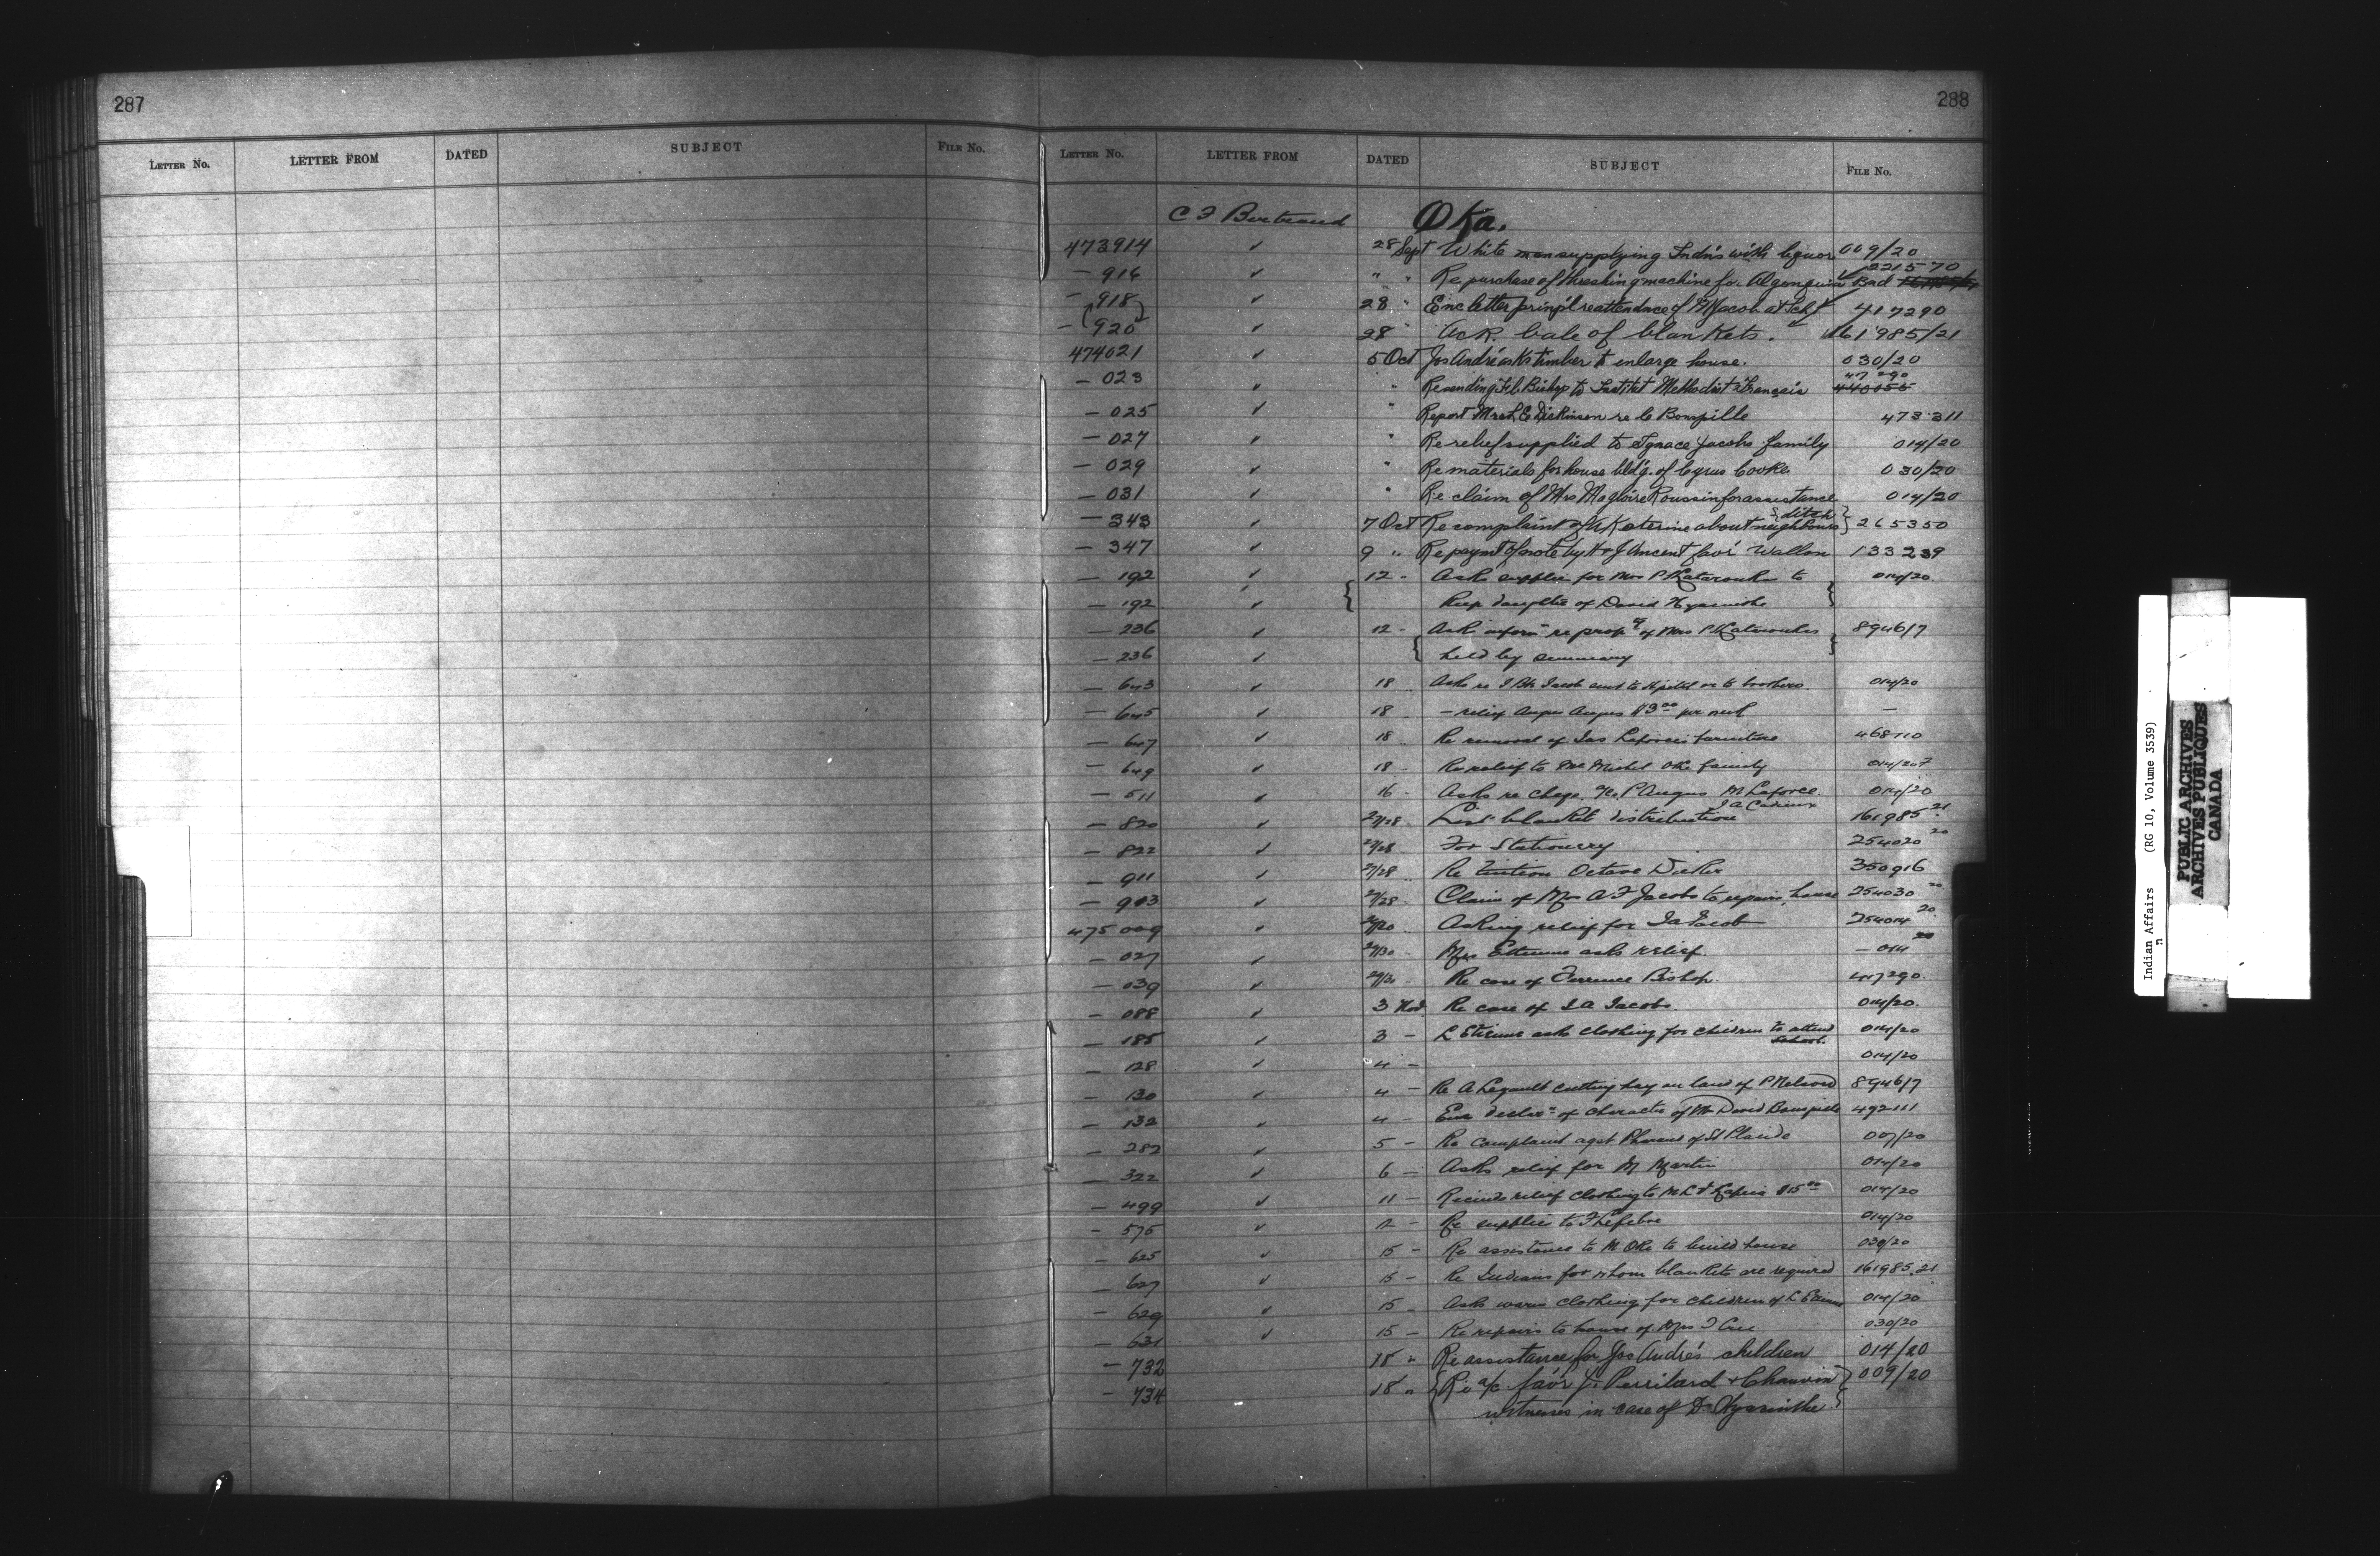 287
LETTER NO. LETTER FROM DATED SUBJECT FILE NO.
288
LETTER NO. LETTER FROM DATED SUBJECT FILE NO.
C F Bertrand Oka.
473914 ✓ 28 Sept White man supplying Indns with liquor 009/20
— 916 ✓ " " Re purchase of threshing machine for Algonquin Bnd 221570
— 918 ✓ 28 " Enc letter prinpl re attendnce of M Jacob at Schl 417290
— 920 ✓ 28 " Ack. bale of blankets. 161985/21
474021 ✓ 5 Oct Jos André asks timber to enlarge house. 030/20
— 023 ✓ " Re sending Bishop to Institut Methodist Français 417290 440055
— 025 ✓ " Report Mrch E Dickinson re 473311
— 027 ✓ " Re relief supplied to Ignace Jacobs family 014/20
— 029 ✓ " Re materials for house bld'g. of Cyrus Cooke 030/20
— 031 ✓ " Re claim of Mrs Magloire Roussin for assistance 014/20
— 343 ✓ 7 Oct Re complaint of about neighbours ditch 265350
— 347 ✓ 9 " Re paymt of note by H & J Vincent fav'r Wallon 133239
— 192 ✓ 12 - Asks supplies for Mrs P Katarouhes to 014/20
— 192 ✓ Keep daughter of David Hyacinthe
— 236 ✓ 12 - Ask inform re propy of Mrs P Katarouhes 89461/7
— 236 ✓ held by seminary
— 643 ✓ 18 Asks re J Bte Jacob sent to Hpital or to brothers 014/20
— 645 ✓ 18 — relief Angus $3.00 per —
— 647 ✓ 18 Re removal of Jas Laforces furniture 468110
— 649 ✓ 18 - Re relief to Michel Oka family 014/20
— 511 ✓ 16 - Asks re chqe P Angus M Laforce 014/20
J A Cadieux
— 820 ✓ 27/28 List blanket distribution 161985 21
— 822 ✓ 27/28 For Stationery 254020 20
— 911 ✓ 27/28 Re tuition Octave Dicker 350916
— 903 ✓ 27/28 Claim of Mrs A F Jacobs to repairs house 254030 20
475009 ✓ Asking relief for Ia Jacob 254014 20
— 027 ✓ 29/30 Mrs Etienne asks relief — 014 20
— 039 ✓ Re case of Terrence Bishop 417290
— 088 ✓ 3 Nov Re case of I A Jacobs 014/20
— 185 ✓ 3 — L Etienne asks clothing for children to attend school. 014/20
— 128 ✓ 4 — 014/20
— 130 ✓ 4 — Re A Legault cutting hay on land of P Nelson 89461/7
— 132 ✓ 4 — Enc declrn of character of Mr David 492111
— 282 ✓ 5 — Re complaint agst of St Placide 007/20
— 322 ✓ 6 — Asks relief for M Martin 014/20
— 499 ✓ 11 — relief clothing to $15.00 014/20
— 575 ✓ Re supplies to F Lefebre 014/20
— 625 ✓ 15 — Re assistance to M Oke to build house 030/20
— 627 ✓ 15 — Re Indians for whom blankets are required 161985.21
— 629 ✓ 15 — Asks warm clothing for children of L Etienne 014/20
— 631 ✓ 15 — Re repairs to house of Mrs J Cree 030/20
— 732 18 " Re assistance for Jos André's children 014/20
— 734 18 " Re a/c fav'r J. Perrilard & Chauvin 009/20
witnesses in case of D Hyacinthe
Indian Affairs (RG 10, Volume 3539)
PUBLIC ARCHIVES
ARCHIVES PUBLIQUES
CANADA